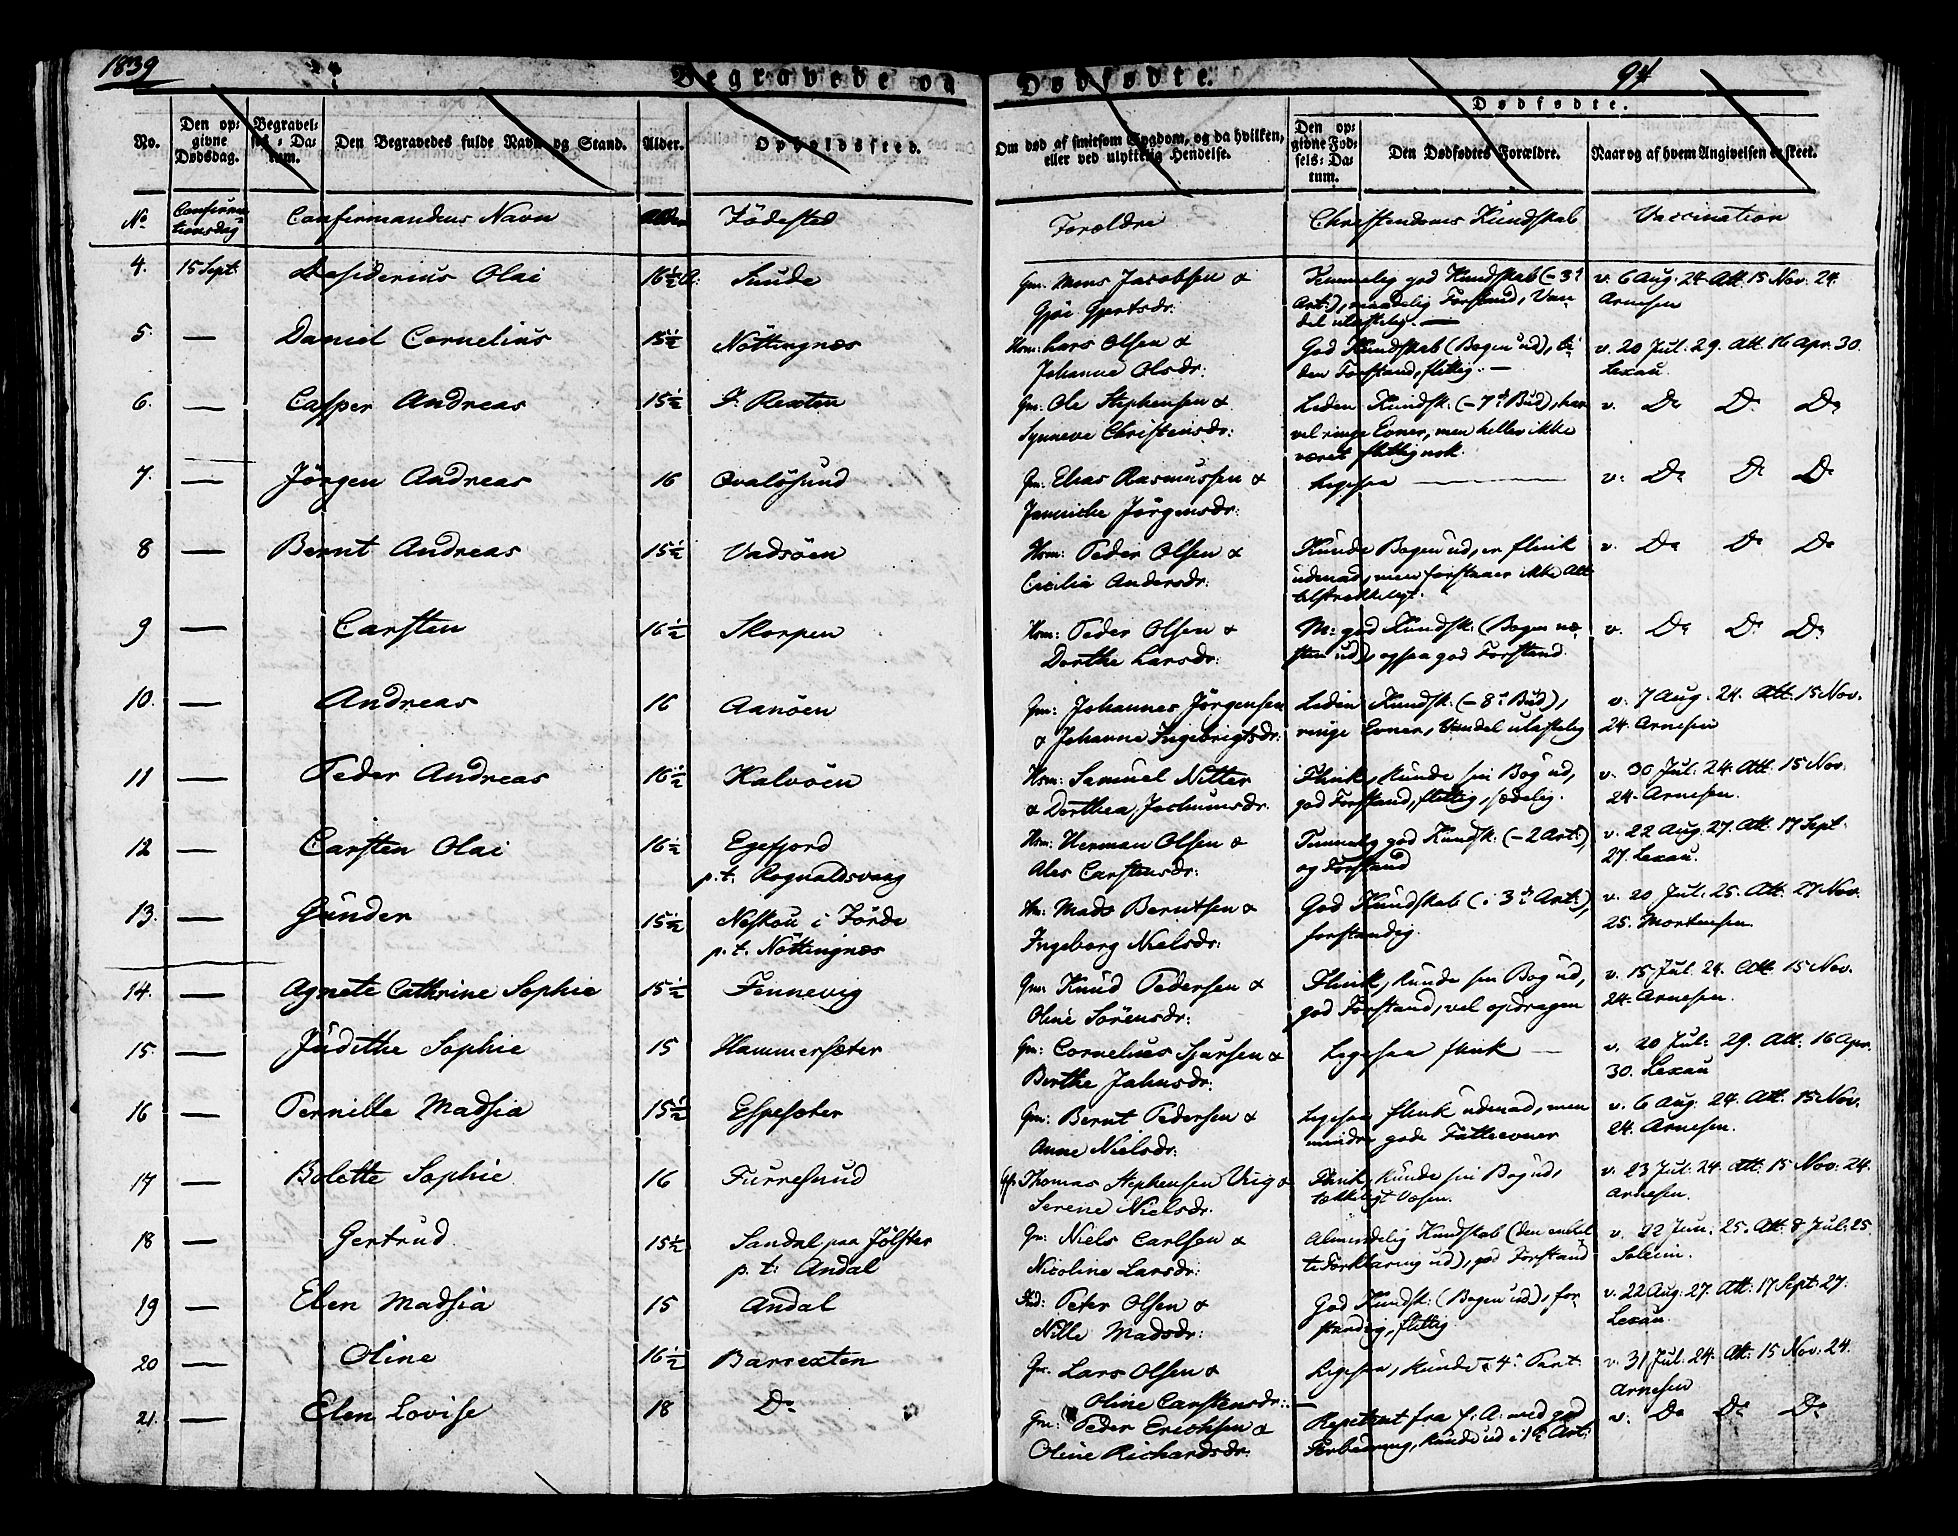 1839
Begravede og Dødfødte.
94
No.
Den opgivne Dødsdag.
Begravelses-Datum.
Den Begravedes fulde Navn og Stand.
Alder.
Opholdssted.
Om død af smitsom Sygdom, og da hvilken, eller ved ulykkelig Hendelse.
Dødfødte.
Den opgivne Fødsels-Datum.
Den Dødfødtes Forældre.
Naar og af hvem Angivelsen er skeet.
No Confirmationsdag Confirmandens Navn Alder Födested Forældre Christendoms Kundskab Vaccination
4. 15 Sept: Desiderius Olai 16½ A: Sunde Gm: Mons Jacobsen & Temmelig god Kundskab (- 3 v. 6 Aug. 24 Att. 15 Nov. 24.
Gjertsdr: Art:), maadelig Forstand, Van- Arnesen
del ulastelig. —
5. — Daniel Cornelius 15½ Nöttingnæs Hsm: Lars Olsen & God Kundskab (Bogen ud), li- v. 20 Jul. 29. Att. 16 Apr. 30.
Johanne Olsdr: den Forstand, flittig. — Lexau
6. — Casper Andreas 15½ Rexten Gm: Ole Stephensen & Liden Kundsk: (- 7de Bud), har v. Do Do Do
Synneve Christensdr: vel ringe Evner, men heller ikke
været flittig nok.
7. — Jörgen Andreas 16 Qvalösund Gm: Elias Rasmussen & Ligesaa — v. Do Do Do
Jörgensdr:
8 — Bernt Andreas 15½ Vadsöen Hsm: Peder Olsen & Kunde Bogen ud, er flink v. Do Do Do
Cicilia Andersdr: udenad, men forstaaer ikke Alt
tilstrekkeligt.
9 — Carsten 16½ Skorpen Hsm: Peder Olsen & M: god Kundsk: (Bogen næ- v. Do Do Do
Dorthe Larsdr: sten ud), ogsaa god Forstand.
10. — Andreas 16 Aanöen Gm: Johannes Jörgensen Liden Kundsk: (- 8de Bud), v. 7 Aug. 24. Att. 15 Nov.
& Johanne Ingebrigtsdr: ringe Evner, Vandel ulastelig 24. Arnesen
11 — Peder Andreas 16½ Kalvöen Hsm: Samuel Nitter Flink, kunde sin Bog ud, v. 30 Jul: 24. Att. 15 Nov:
& Dorthea Jochumsdr. god Forstand, flittig, sædelig. 24. Arnesen.
12 — Carsten Olai 16½ Egefjord Hsm: Herman Olsen & Temmelig god Kundsk: (- 2 Art:), v. 22 Aug. 27. Att. 17 Sept:
p.t. Rognaldsvaag Ales Carstensdr: og Forstand 27. Lexau.
13. — Gunder 15½ Neskou i Förde Mads Berntsen & God Kundskab (i 3de Art:), v. 20 Jul. 25. Att. 27 Nov.
p.t. Nöttingnæs Ingeborg Nielsdr: forstandig. 25. Mortensen.
14. — Agnete Cathrine Sophie 15½ Fennevig Gm: Knud Pedersen & Flink, kunde sin Bog ud, v. 15 Jul. 24. Att. 15 Nov.
Oline Sörensdr: god Forstand, vel opdragen 24. Arnesen.
15. — Judithe Sophie 15 Hammersæter Gm: Cornelius Sjursen & Ligesaa flink — v. 20 Jul: 29. Att: 16 Apr.
Berthe Jahnsdr: 30. Lexau
16 — Pernille Madsia 15½ Espesæter Gm: Bernt Pedersen & Ligesaa flink udenad, men v. 6 Aug. 24. Att. 15 Nov.
Anne Nielsdr: mindre gode Fatteevner 24. Arnesen.
17 — Bolette Sophie 16 Furresund Thomas Stephensen Krig & Flink, kunde sin Bog ud, v. 23 Jul: 24. Att: 15 Nov. 24.
Serene Nielsdr. tækkeligt Væsen. Arnesen.
18 — Gertrud 15½ Sandal paa Jölster Gm: Niels Carlsen & Almindelig Kundskab (den enkel- v. 22 Jun: 25. Att. 8 Jul: 25.
p.t: Andal Nicoline Larsdr: te Forklaring ud), god Forstand
19 — Elen Madsia 15 Andal Peter Olsen & God Kundsk: (Bogen ud), for- v. 22 Aug: 27. Att: 17 Sept: 27.
Nille Madsdr: standig, flittig Lexau.
20 — Oline 16½ Barrexten Gm: Lars Olsen & Ligesaa, kunde - 4de Part v. 31 Jul: 24. Att: 15 Nov. 24.
Oline Carstensdr: — Arnesen
21. — Elen Lovise 18 Do Gm: Peder Erichsen & Repetent fra f: A: med god v. Do Do Do
Oline Richardsdr. Forbedring, kunde ud i 1ste Art: